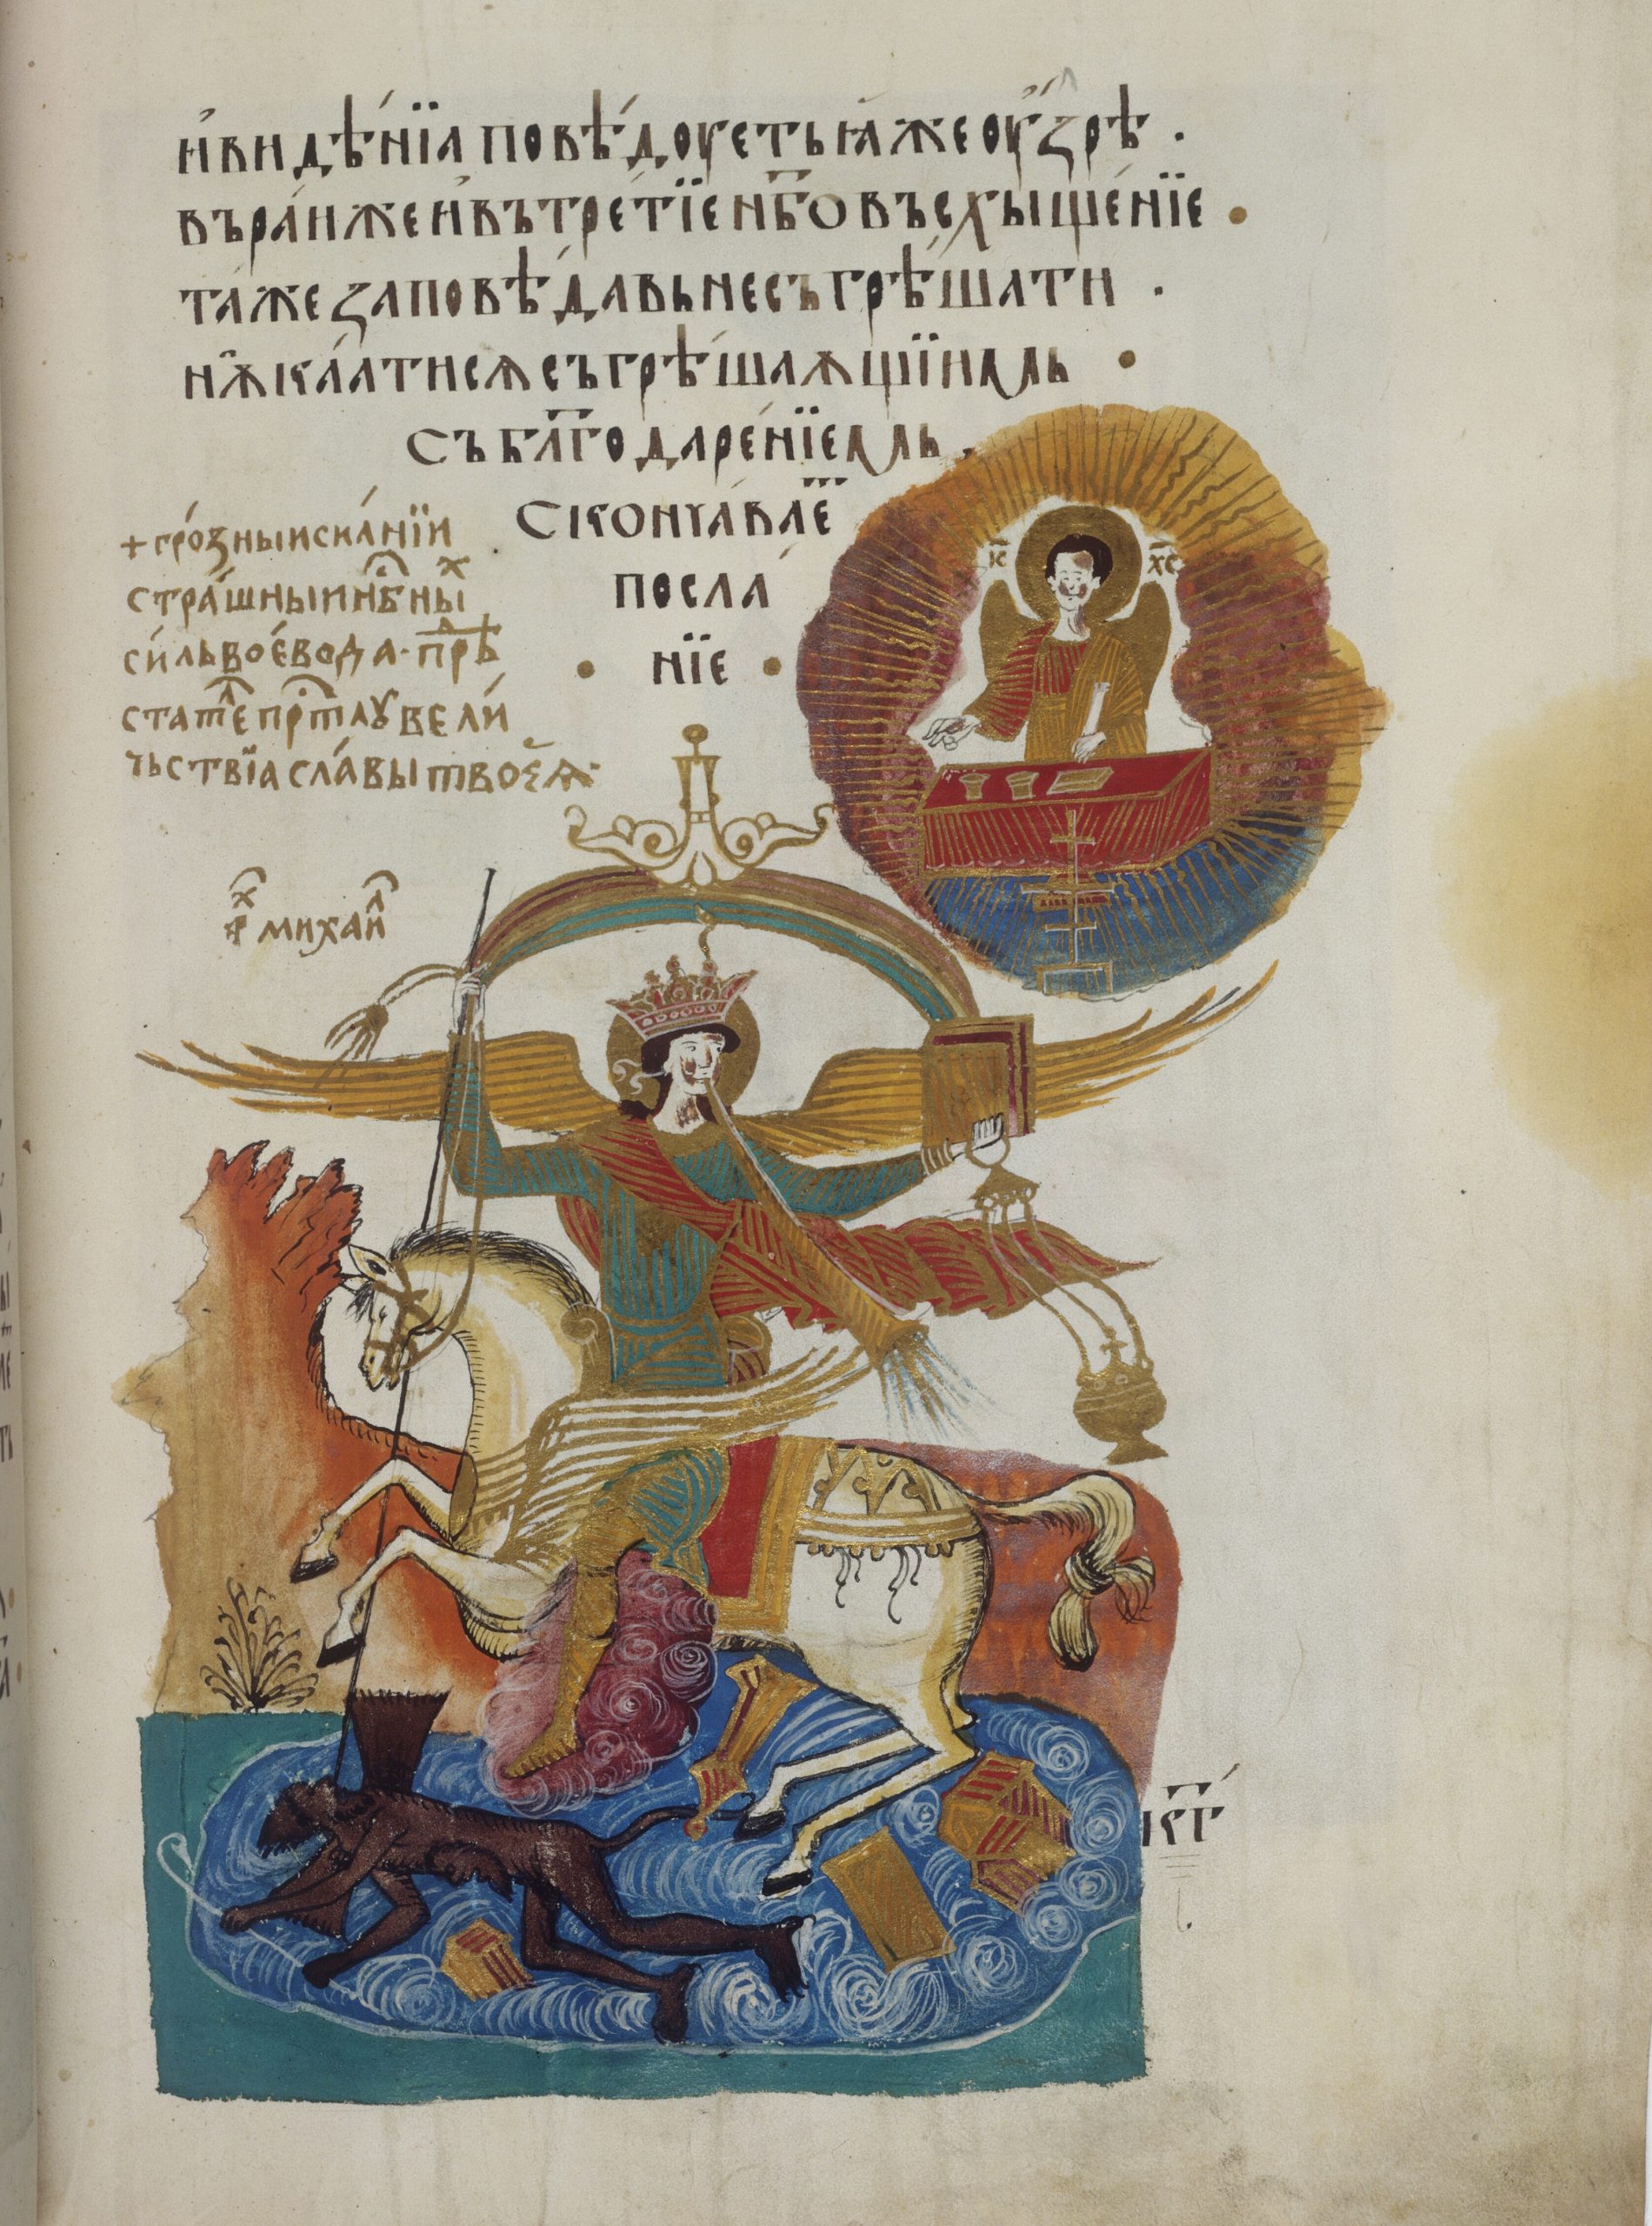 и҆ видѣ́нїа повѣ́дꙋеть ꙗ҆́же оу҆зрѣ̀ .
въ ра́и же и҆ въ тре́тїе нб҃о въсхыще́нїе •
та́же заповѣ́давь не съгрѣ́шати .
нѫ ка́ати сѧ съгрѣ́шаѫщїимь •
съ блг҃одаре́нїемь .
сконча́вае҃
посла́
• нїе •
+ гро́зныи сила́нїи
стра́шныи нб҃ны х
си́ль воево́да · прѣ
ста́тл҃е прт҃лу вели́
чьствїа сла́вы твоеѧ ·
і҃с х҃с
а҃р х михаи́л
кг҃